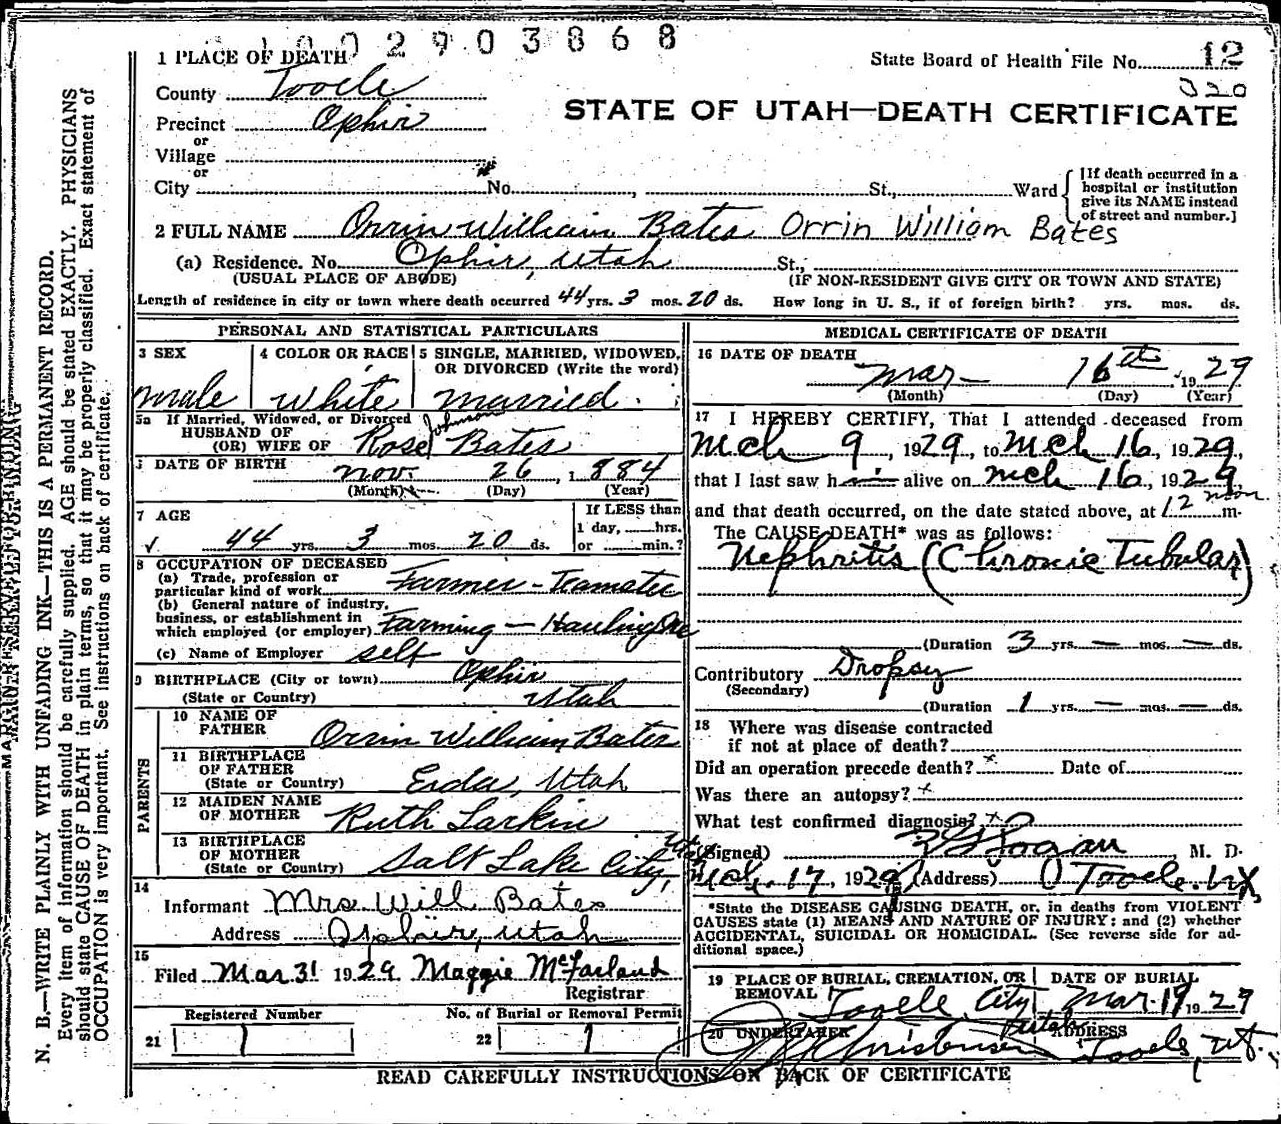 1002903868
1 PLACE OF DEATH
State Board of Health File No. 12
320
County Tooele
STATE OF UTAH—DEATH CERTIFICATE
Precinct Ophir
or
Village
or
City No. , St., Ward
[If death occurred in a
hospital or institution
give its NAME instead
of street and number.]
2 FULL NAME Orrin William Bates Orrin William Bates
(a) Residence. No. Ophir, Utah St.,
(USUAL PLACE OF ABODE) (IF NON-RESIDENT GIVE CITY OR TOWN AND STATE)
Length of residence in city or town where death occurred 44 yrs. 3 mos. 20 ds. How long in U. S., if of foreign birth? yrs. mos. ds.
PERSONAL AND STATISTICAL PARTICULARS
3 SEX 4 COLOR OR RACE 5 SINGLE, MARRIED, WIDOWED,
OR DIVORCED (Write the word)
male white married
5a If Married, Widowed, or Divorced
HUSBAND OF
(OR) WIFE OF Rose Johnson Bates
DATE OF BIRTH Nov. 26, 1884
(Month) (Day) (Year)
7 AGE
44 yrs. 3 mos. 20 ds.
If LESS than
1 day, hrs.
or min.?
8 OCCUPATION OF DECEASED
(a) Trade, profession or
particular kind of work Farmer - Teamster
(b) General nature of industry,
business, or establishment in
which employed (or employer) Farming — Hauling Ore
(c) Name of Employer self
9 BIRTHPLACE (City or town) Ophir
(State or Country) Utah
PARENTS
10 NAME OF
FATHER Orrin William Bates
11 BIRTHPLACE
OF FATHER
(State or Country) Erda, Utah
12 MAIDEN NAME
OF MOTHER Ruth Larkin
13 BIRTHPLACE
OF MOTHER
(State or Country) Salt Lake City, Utah
14
Informant Mrs Will Bates
Address Ophir, Utah
15
Filed Mar 31 1929 Maggie McFarland
Registrar
Registered Number No. of Burial or Removal Permit
21 1 22 1
MEDICAL CERTIFICATE OF DEATH
16 DATE OF DEATH
Mar— 16th, 1929
(Month) (Day) (Year)
17 I HEREBY CERTIFY, That I attended deceased from
Mch 9, 1929, to Mch 16, 1929,
that I last saw h alive on Mch 16, 1929,
and that death occurred, on the date stated above, at 12 noon m.
The CAUSE DEATH* was as follows:
Nephritis (Chronic Tubular)
(Duration 3 yrs. — mos. — ds.
Contributory Dropsy
(Secondary)
(Duration 1 yrs. — mos. — ds.
18 Where was disease contracted
if not at place of death?
Did an operation precede death? x Date of
Was there an autopsy? x
What test confirmed diagnosis? x
(Signed) M. D.
Mch. 17, 1929 (Address) Tooele. Ut.
*State the DISEASE CAUSING DEATH, or, in deaths from VIOLENT
CAUSES state (1) MEANS AND NATURE OF INJURY; and (2) whether
ACCIDENTAL, SUICIDAL OR HOMICIDAL. (See reverse side for ad-
ditional space.)
19 PLACE OF BURIAL, CREMATION, OR
REMOVAL Tooele City Utah
DATE OF BURIAL
Mar. 19 1929
20 UNDERTAKER ADDRESS
Christensen Tooele, Ut.
READ CAREFULLY INSTRUCTIONS ON BACK OF CERTIFICATE
MARGIN RESERVED FOR BINDING
N. B.—WRITE PLAINLY WITH UNFADING INK—THIS IS A PERMANENT RECORD.
Every item of information should be carefully supplied. AGE should be stated EXACTLY. PHYSICIANS
should state CAUSE OF DEATH in plain terms, so that it may be properly classified. Exact statement of
OCCUPATION is very important. See instructions on back of certificate.